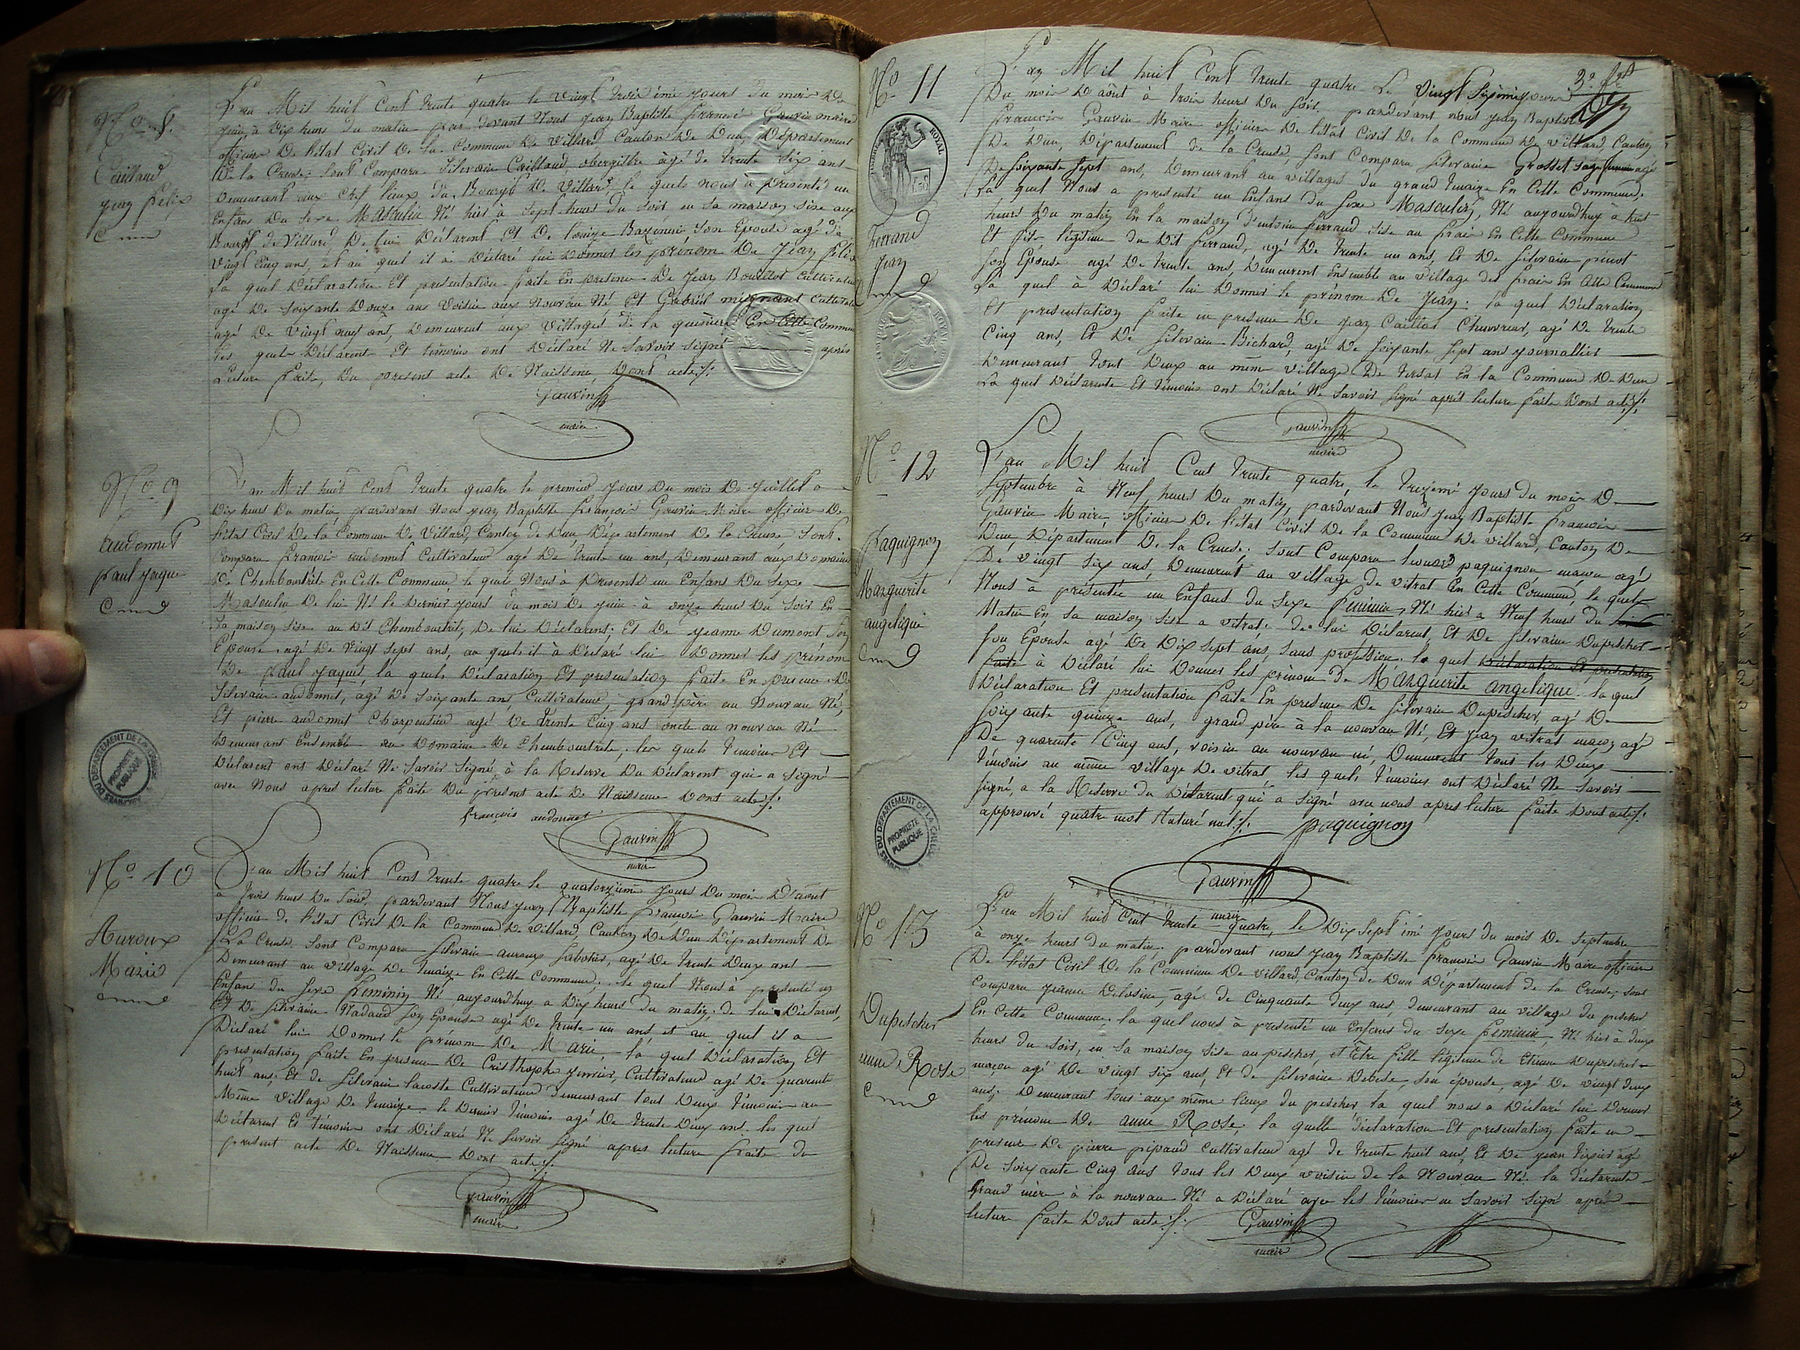 No 8.
Caillaud
Jean félix
L'an Mil huit Cent trente quatre le vingt troisième jours du mois De
juin, à Dix heurs du matin par devant Nous Jean Baptiste francois Gauvin maire
officier De l'état Civil De la Commune De villard Canton De Dun, Département
De la Creuse; Sont Compara Silvain Caillaud aubergiste âgé de trente Six ans
Demeurant aux chef lieux du Bourgt De Villard, le quels nous à présenté un
Enfans du Sexe Masculin Né hier à Sept heurs du Soir en Sa maison Sise aux
Bourgt de Villard, De lui Déclarent Et De louise Bazenui Son Epouse agé de
vingt Cinq ans, et au quel il à Déclaré lui Donner les prénom De Jean félix
La quel Déclaration Et présentation faite En présence De Jean Cultivateur
agé De Soixante Douze ans Voisin aux Nouveau Né, Et Gabriel mignant Cultivateur
agé De Vingt neuf ans, Demeurent aux Villages De la En Cette Commune
les quels Déclarent Et témoins ont Déclaré Ne Savoir Signé après
Lecture faite, Du présent acte De Naissence Dont acte ./.
Gauvin
maire
No 9
audonnet
paul jaque
L'an Mil huit Cent trente quatre le premier jours Du mois De juillet à
Dix heurs Du matin, pardevant Nous jean Baptiste francois Gauvin Maire officier De
l'état Civil De la Commune De Villard Canton de Dun Département De la Creuse Sont
Compara francois audonnet Cultivateur agé De trente un ans, Demeurant aux Domaine
De Chemboutrete En Cette Commune le quels Nous à Présenté un Enfans Du Sexe
Masculin De lui Né le Dernier jours du mois De juin à onze heurs Du Soir En
Sa maison Sise au Dit Chemboutrete, De lui Déclarent; Et De jeanne Dumont Son
Epouse agé de Vingt Sept ans, au quels il à Déclaré lui Donner les prénom
De paul jaques la quels Déclaration Et présentation faite En présence De
Silvain audonnet, agé De Soixante ans Cultivateur, grand père au Nouveau Né,
Et pierre audonnet Charpentier agé De trente Cinq ans oncle au nouveau Né
Demeurant Ensemble au Domaine De Chemboutrete, les quels témoins Et
Déclarent ont Déclaré Ne Savoir Signé, à la Réserve Du Déclarent, qui a Signé
avec Nous apres lecture faite Du présent acte De Naissence Dont acte ./.
françois audonnet
Gauvin
maire
No 10
Auroux
Marie
L'an Mil huit Cent trente quatre le quatorzième jours Du mois D'aout
à trois heurs Du Soir, pardevant Nous jean Baptiste francois Gauvin Maire
officier de l'état Civil De la Commune De Villard Canton De Dun Département De
La Creuse, Sont Compara Silvain auroux Sabotier, agé De trente Deux ans
Demeurant au Village De tenaize En Cette Commune, le quel Nous à présenté un
Enfans du Sexe feminin, Né aujourdhuy a Dix heurs du matin, De lui Déclarent,
Et De Silvaine Nadaud Son Epouse agé De trente un ans et au quel il a
Déclaré lui Donner le prénom De Marie, la quel Déclaration Et
présentation faite En présence De Cristhophe jenvier, Cultivateur agé De quarente
huit ans, Et de Silvain lacoste Cultivateur Demeurant tout Deux témoins au
Même Village De tenaize le Dernier témoins agé De trente Deux ans, les quel
Déclarent Et témoins ont Déclaré Ne Savoir Signé apres lecture faite de
présent acte De Naissence Dont acte ./.
Gauvin
maire
ARCHIVES DU DEPARTEMENT DE LA CREUSE
PROPRIETE PUBLIQUE
No 11
ROYAL
ferrand
Jean
L'an Mil huit Cent trente quatre Le vingt Septième jours
Du mois D'aout à trois heurs Du Soir, pardevant nous jean Baptiste
francois Gauvin Maire officier De l'état Civil De la Commune De Villard, Canton
De Dun, Département De la Creuse, Sont Compara Silvaine Grosset Sage femme agé
De Soixante Sept ans, Demeurant au village Du grand tenaize En Cette Commune,
La quel Nous a présenté un Enfans Du Sexe Masculin, Né aujourdhuy à huit
heurs Du matin En la maison D'antoine ferraud Sise au frai En Cette Commune
Et fils légitime Du Dit ferraud, agé De trente un ans, Et De Silvaine
Son Epouse agé De trente ans, Demeurent Ensemble au village Des frais En Cette Commune
La quel à Déclaré lui Donner le prénom De Jean: la quel Déclaration
Et présentation faite En présence De jean Caillot Chauvreur, agé De trente
Cinq ans, Et De Silvain Bichard, agé De Soixante Sept ans journallier
Demeurant tout Deux au même village De En la Commune De Dun
La quel Déclarente Et témoins ont Déclaré Ne Savoir Signé apres lecture faite Dont acte ./.
Gauvin
maire
No 12
paquignon
Marguerite
angelique
L'an Mil huit Cent trente quatre, le treizième jours du mois De
Septembre à Neuf heurs Du matin, pardevant Nous jean Baptiste francois
Gauvin Maire, officier De l'état Civil De la Commune De Villard, Canton De
Dun, Département De la Creuse. Sont Compara paquignon macon agé
De vingt Six ans, Demeurent au village de vitrat En Cette Commune, le quel
Nous à présentée un Enfans du Sexe feminin, Né hier à Neuf heurs du
Matin En Sa maison Sise a vitrat; de lui Déclarent, Et De Silvaine Dupéscher
Son Epouse agé De Dix Sept ans, Sans profession. le quel Déclaration Et présentation
faite à Déclaré lui Donner les prénom de Marguerite angelique. la quel
Déclaration Et présentation faite En présence De Silvain Dupéscher, agé De
Soixante quinze ans, grand père à la nouveau Né, Et jean vitrat macon agé
De quarente Cinq ans, voisin au nouveau né, Demeurent tous les Deux
témoins au même village De vitrat les quels témoins ont Déclaré Ne Savoir
Signé, a la Réserve du Déclarent qui a Signé avec nous apres lecture faite Dont acte ./.
approuvé quatre mot raturé nul ./.
paquignon
Gauvin
maire
ARCHIVES DU DEPARTEMENT DE LA CREUSE
PROPRIETE PUBLIQUE
No 13
Dupéscher
anne Rose
L'an Mil huit Cent trente quatre, le Dix Septième jours du mois De Septembre
à onze heurs du matin, pardevant nous jean Baptiste francois Gauvin Maire officier
De l'état Civil De la Commune De Villard, canton De Dun Département de la Creuse, Sont
Compara jeanne agé de Cinquante deux ans, demeurant au village du péscher
En Cette Commune, la quel nous à présenté un Enfans du Sexe feminin, Né hier à Deux
heurs du Soir, en Sa maison Sise au péscher, et Être fille légitime de Etienne Dupéscher
macon agé De vingt Six ans, Et de Silvaine Son épouse, agé De vingt deux
ans, Demeurant tous aux même lieux Du péscher la quel nous a Déclaré lui Donner
les prénom De anne Rose; la quelle Déclaration Et présentation faite en
présence De pierre pipaud Cultivateur agé de trente huit ans, Et De jean agé
De Soixante Cinq ans tous les Deux voisin de la Nouveau Né. la déclarente
grand mère à la nouveau Né a Déclaré avec les témoins ne Savoir Signé après
lecture faite Dont acte ./.
Gauvin
maire